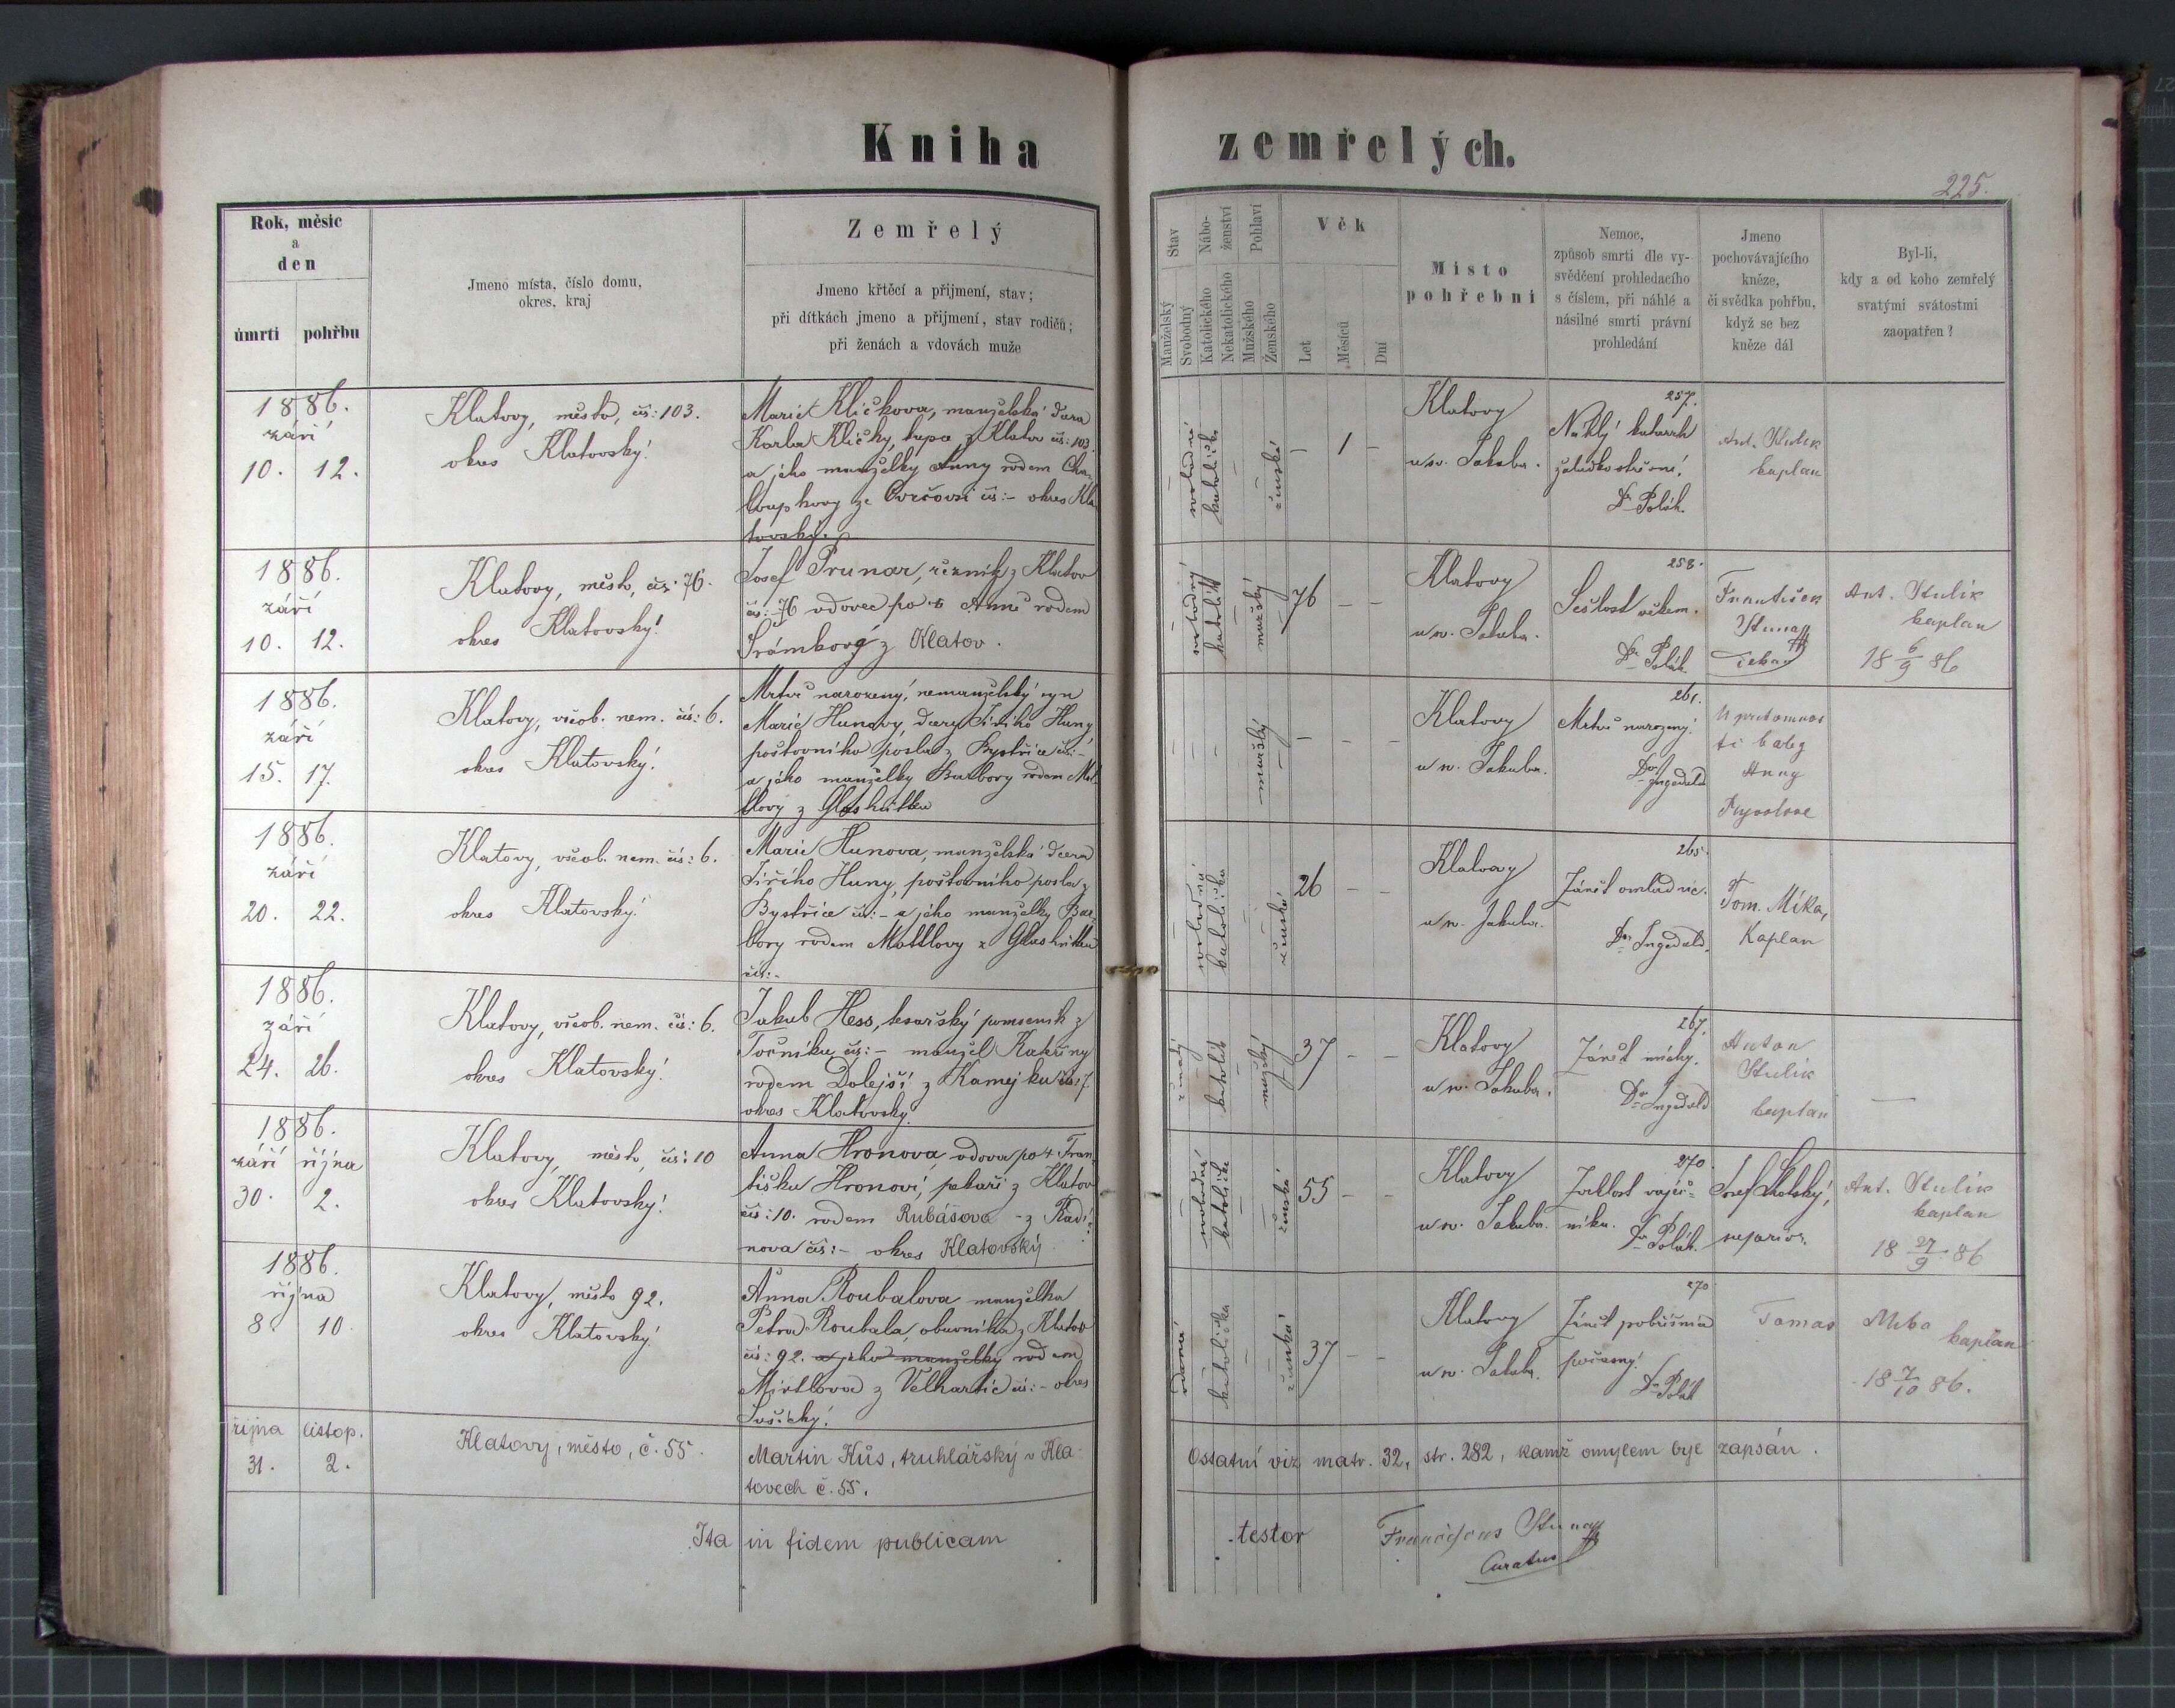 Kniha zemřelých.
225.
Rok, měsíc
a
den
úmrtí pohřbu
Jmeno místa, číslo domu,
okres, kraj
Zemřelý
Jmeno křtěcí a přijmení, stav;
při dítkách jmeno a přijmení, stav rodičů;
při ženách a vdovách muže
Stav
Manželský
Svobodný
Nábo-
ženství
Katolického
Nekatolického
Pohlaví
Mužského
Ženského
Věk
Let
Měsíců
Dní
Místo
pohřební
Nemoc,
způsob smrti dle vy-
svědčení prohledacího
s číslem, při náhlé a
násilné smrti právní
prohledání
Jmeno
pochovávajícího
kněze,
či svědka pohřbu,
když se bez
kněze dál
Byl-li,
kdy a od koho zemřelý
svatými svátostmi
zaopatřen?
1886.
září
10. 12.
Klatovy, město, čís: 103.
okres Klatovský.
Marie Kličkova, manželská dcera
Karla Kličky, z Klatov čís: 103
a jeho manželky Anny rodem Cha-
loupkovy ze čís:- okres Kla-
tovský.
svobodná
katolička
ženská
– 1 –
Klatovy
u sv. Jakuba.
257.
Náhlý katarrh
žaludko střevní.
Dr Polák.
Ant. Stulik
kaplan
1886.
září
10. 12.
Klatovy, město, čís: 76.
okres Klatovský.
Josef Prunar, řezník z Klatov
čís: 76 vdovec po Anně rodem
Šrámkový z Klatov.
svobodný
katolík
mužský
76 – –
Klatovy
u sv. Jakuba.
258.
Sešlost věkem.
Dr Polák.
František
Ant. Stulik
kaplan
18 6/9 86
1886.
září
15. 17.
Klatovy, všeob. nem. čís: 6.
okres Klatovský.
Mrtvě narozený, nemanželský syn
Marie Hunovy, dcery Jiřího Huny
poštovního posla z Bystřice čís:-
a jeho manželky Barbory rodem Mot-
tlovy z Glashütten
mužský
– – –
Klatovy
u sv. Jakuba.
261.
Mrtvě narozený.
Dr Ingedald
U pritomnos
ti baby
Anny
1886.
září
20. 22.
Klatovy, všeob. nem. čís: 6.
okres Klatovský.
Marie Hunova, manželská dcera
Jiřího Huny, poštovního posla z
Bystřice čís:- a jeho manželky Bar-
bory rodem Mottlovy z Glashütten
čís:-
svobodná
katolička
ženská
26 – –
Klatovy
u sv. Jakuba.
265.
Zánět omladnic.
Dr Ingedald.
Tom. Míka,
Kaplan
1886.
září
24. 26.
Klatovy, všeob. nem. čís: 6.
okres Klatovský.
Jakub Hess, tesařský pomocník z
Točníku čís:- manžel Kateřiny
rodem Dolejší z Kamejku čís: 7
okres Klatovský.
ženatý
katolík
mužský
37 – –
Klatovy
u sv. Jakuba.
267.
Zánět míchy.
Dr Ingedald
Anton
Stulik
kaplan
–
1886.
září října
30. 2.
Klatovy, město, čís: 10
okres Klatovský.
Anna Hronova vdova po + Fran-
tišku Hronovi, pekaři z Klatov
čís: 10. rodem Rubášova - z Radi-
nova čís:- okres Klatovský
svobodná
katolička
ženská
55 – –
Klatovy
u sv. Jakuba.
270.
Zvrhlost vaječ-
níku. Dr Polák.
Josef Skotský,
superior.
Ant. Stulik
kaplan
18 27/9 86
1886.
října
8. 10.
Klatovy, město 92.
okres Klatovský.
Anna Roubalova manželka
Petra Roubala, obuvníka z Klatov
čís: 92. a jeho manželky rodem
z Velhartic čís:- okres
Sušický.
vdaná
katolička
ženská
37 – –
Klatovy
u sv. Jakuba.
270
Zánět pobřišnice
počasný.
Dr Polák
Tomas Mika
kaplan
18 7/10 86.
října listop.
31. 2.
Klatovy, město, č. 55.
Martin Kůs, truhlářský v Kla-
tovech č. 55.
Ostatní viz matr. 32, str. 282, kamž omylem byl zapsán.
Ita in fidem publicam testor
Franciscus
Curatus